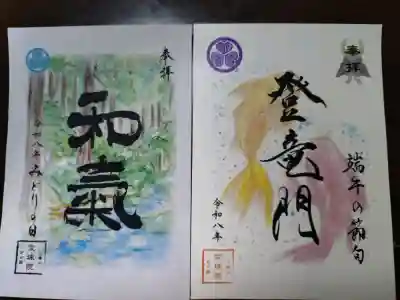 奉拝
和氣
令和八年 みどりの日
奉拝
登竜門
端午の節句
令和八年